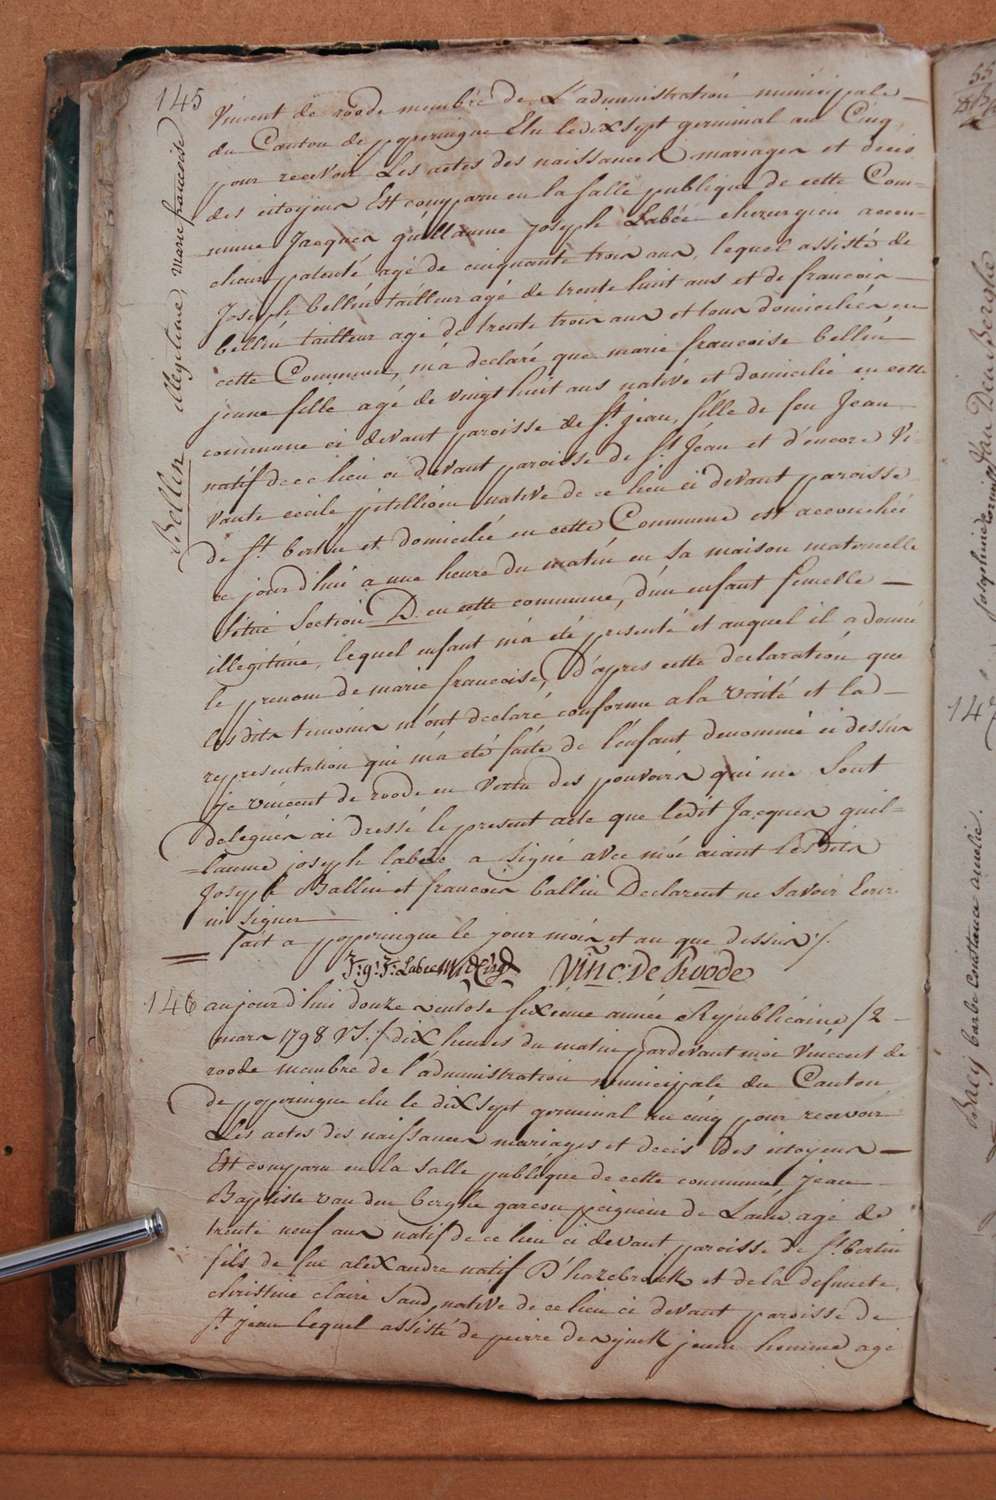 145
Bellin illegitime, marie francoise
Vincent de roode membre de L'administration municipale
du Canton de poperingue Elu le dix sept germinal an Cinq
pour recevoir Les actes des naissances mariages et decés
des citoyens Est comparu en la salle publique de cette Com=
mune Jacques guillaume joseph Labée chirurgien accou=
cheur patenté agé de cinquante trois ans, lequel assisté de
Joseph bellin tailleur agé de trente huit ans et de francois
bellin tailleur agé de trente trois ans et tous domiciliés en
cette Commune, m'a declaré que marie francoise bellin
jeune fille agé de vingt huit ans native et domicilié en cette
commune ci devant paroisse de St jean, fille de feu Jean
natif de ce lieu ci devant paroisse de St Jean et d'encore Vi=
vante cecile petillion native de ce lieu ci devant paroisse
de St bertin et domicilié en cette Commune est accouchée
ce jourd'hui a une heure du matin en sa maison maternelle
située Section D. en cette commune, d'un enfant femelle
illegitime, lequel enfant m'a été presenté et auquel il a donné
le prenom de marie francoise, D'apres cette declaration que
lesdits temoins m'ont declaré conforme a la verité et la
representation qui m'a été faite de l'enfant denommé ci dessus
je vincent de roode en vertu des pouvoirs qui me sont
delegués ai dressé le present acte que ledit Jacques guil=
=laume joseph labée a signé avec moi aiant lesdits
Joseph Ballin et francois ballin Declarent ne savoir Ecrire
ni signer
fait a poperingue le jour mois et an que dessus /.
J: g: J: Labee Vinc: De Roode
146 aujourd'hui douze ventose sixieme année Republicaine /2
mars 1798 VS:/ dix heures du matin pardevant moi Vincent de
roode membre de l'administration municipale du Canton
de poperingue elu le dix sept germinal an cinq pour recevoir
Les actes des naissances mariages et decés des citoyens
Est comparu en la salle publique de cette commune jean
Baptiste van den berghe garcon peigneur de Laine agé de
trente neuf ans natif de ce lieu ci devant paroisse de St bertin
fils de feu alexandre natif D'hazebrouck et de la defuncte
christine claire Saud, native de ce lieu ci devant paroisse de
St jean lequel assisté de pierre de vynck jeune homme agé
55
14
Van Den Berghe
Bacy barbe constance amelie.